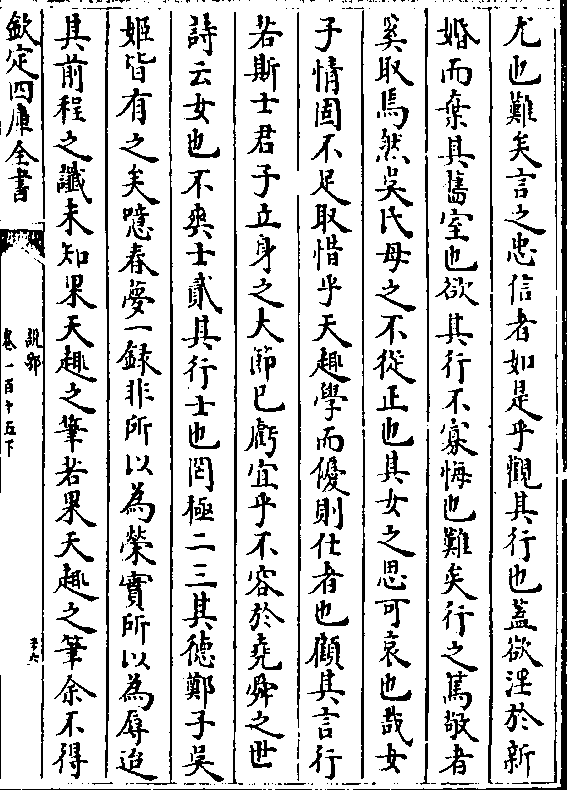 尤也難矣言之忠信者如是乎觀其行也蓋欲淫於新
婚而棄其舊室也欲其行不寡悔也難矣行之篤敬者
奚取焉然吳氏母之不從正也其女之思可哀也哉女
子情固不足取惜乎天趣學而優則仕者也顧其言行
若斯士君子立身之大節已虧宜乎不容於堯舜之世
詩云女也不爽士貳其行士也罔極二三其德鄭子吳
姬皆有之矣噫春夢一錄非所以為榮實所以為辱迨
其前程之讖未知果天趣之筆若果天趣之筆余不得
欽定四庫全書
說郛
卷一百十五下